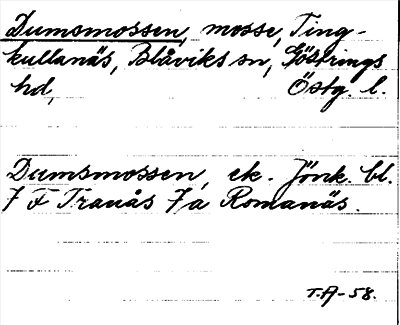 Dumsmossen, mosse, Ting-
kullanäs, Blåviks sn, Göstrings
hd, Östg. l.
Dumsmossen, ek. Jönk. bl.
7 F Tranås 7a Romanäs.
T.A-58.